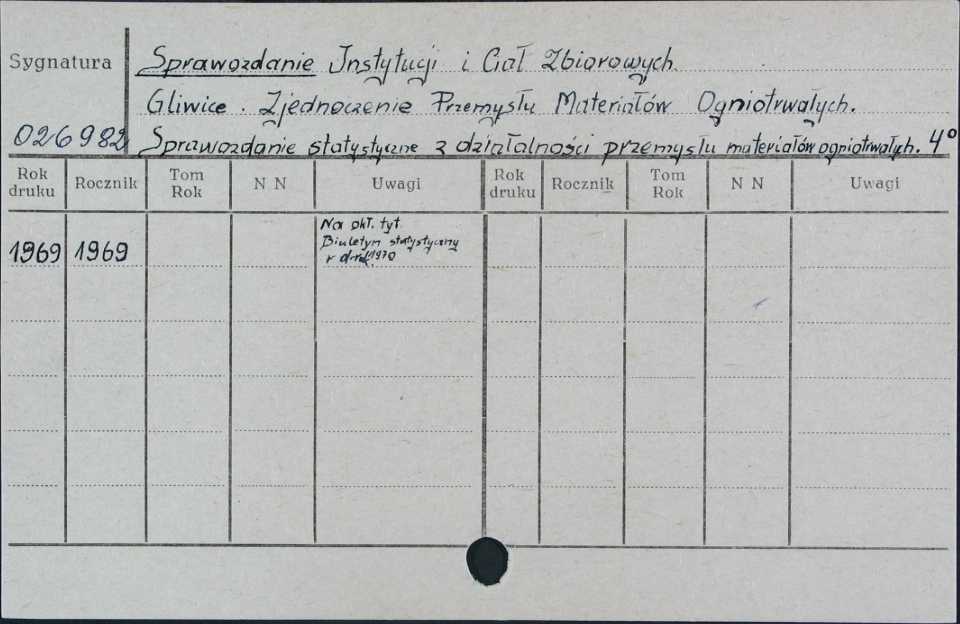 Sygnatura
Sprawozdanie Instytucji i Ciał Zbiorowych.
Gliwice. Zjednoczenie Przemysłu Materiałów Ogniotrwałych.
026982 Sprawozdanie statystyczne z działalności przemysłu materiałów ogniotrwałych. 4°
Rok druku Rocznik Tom Rok N N Uwagi Rok druku Rocznik Tom Rok N N Uwagi
Na okł. tyt.
Biuletyn statystyczny
1969 1969
1970